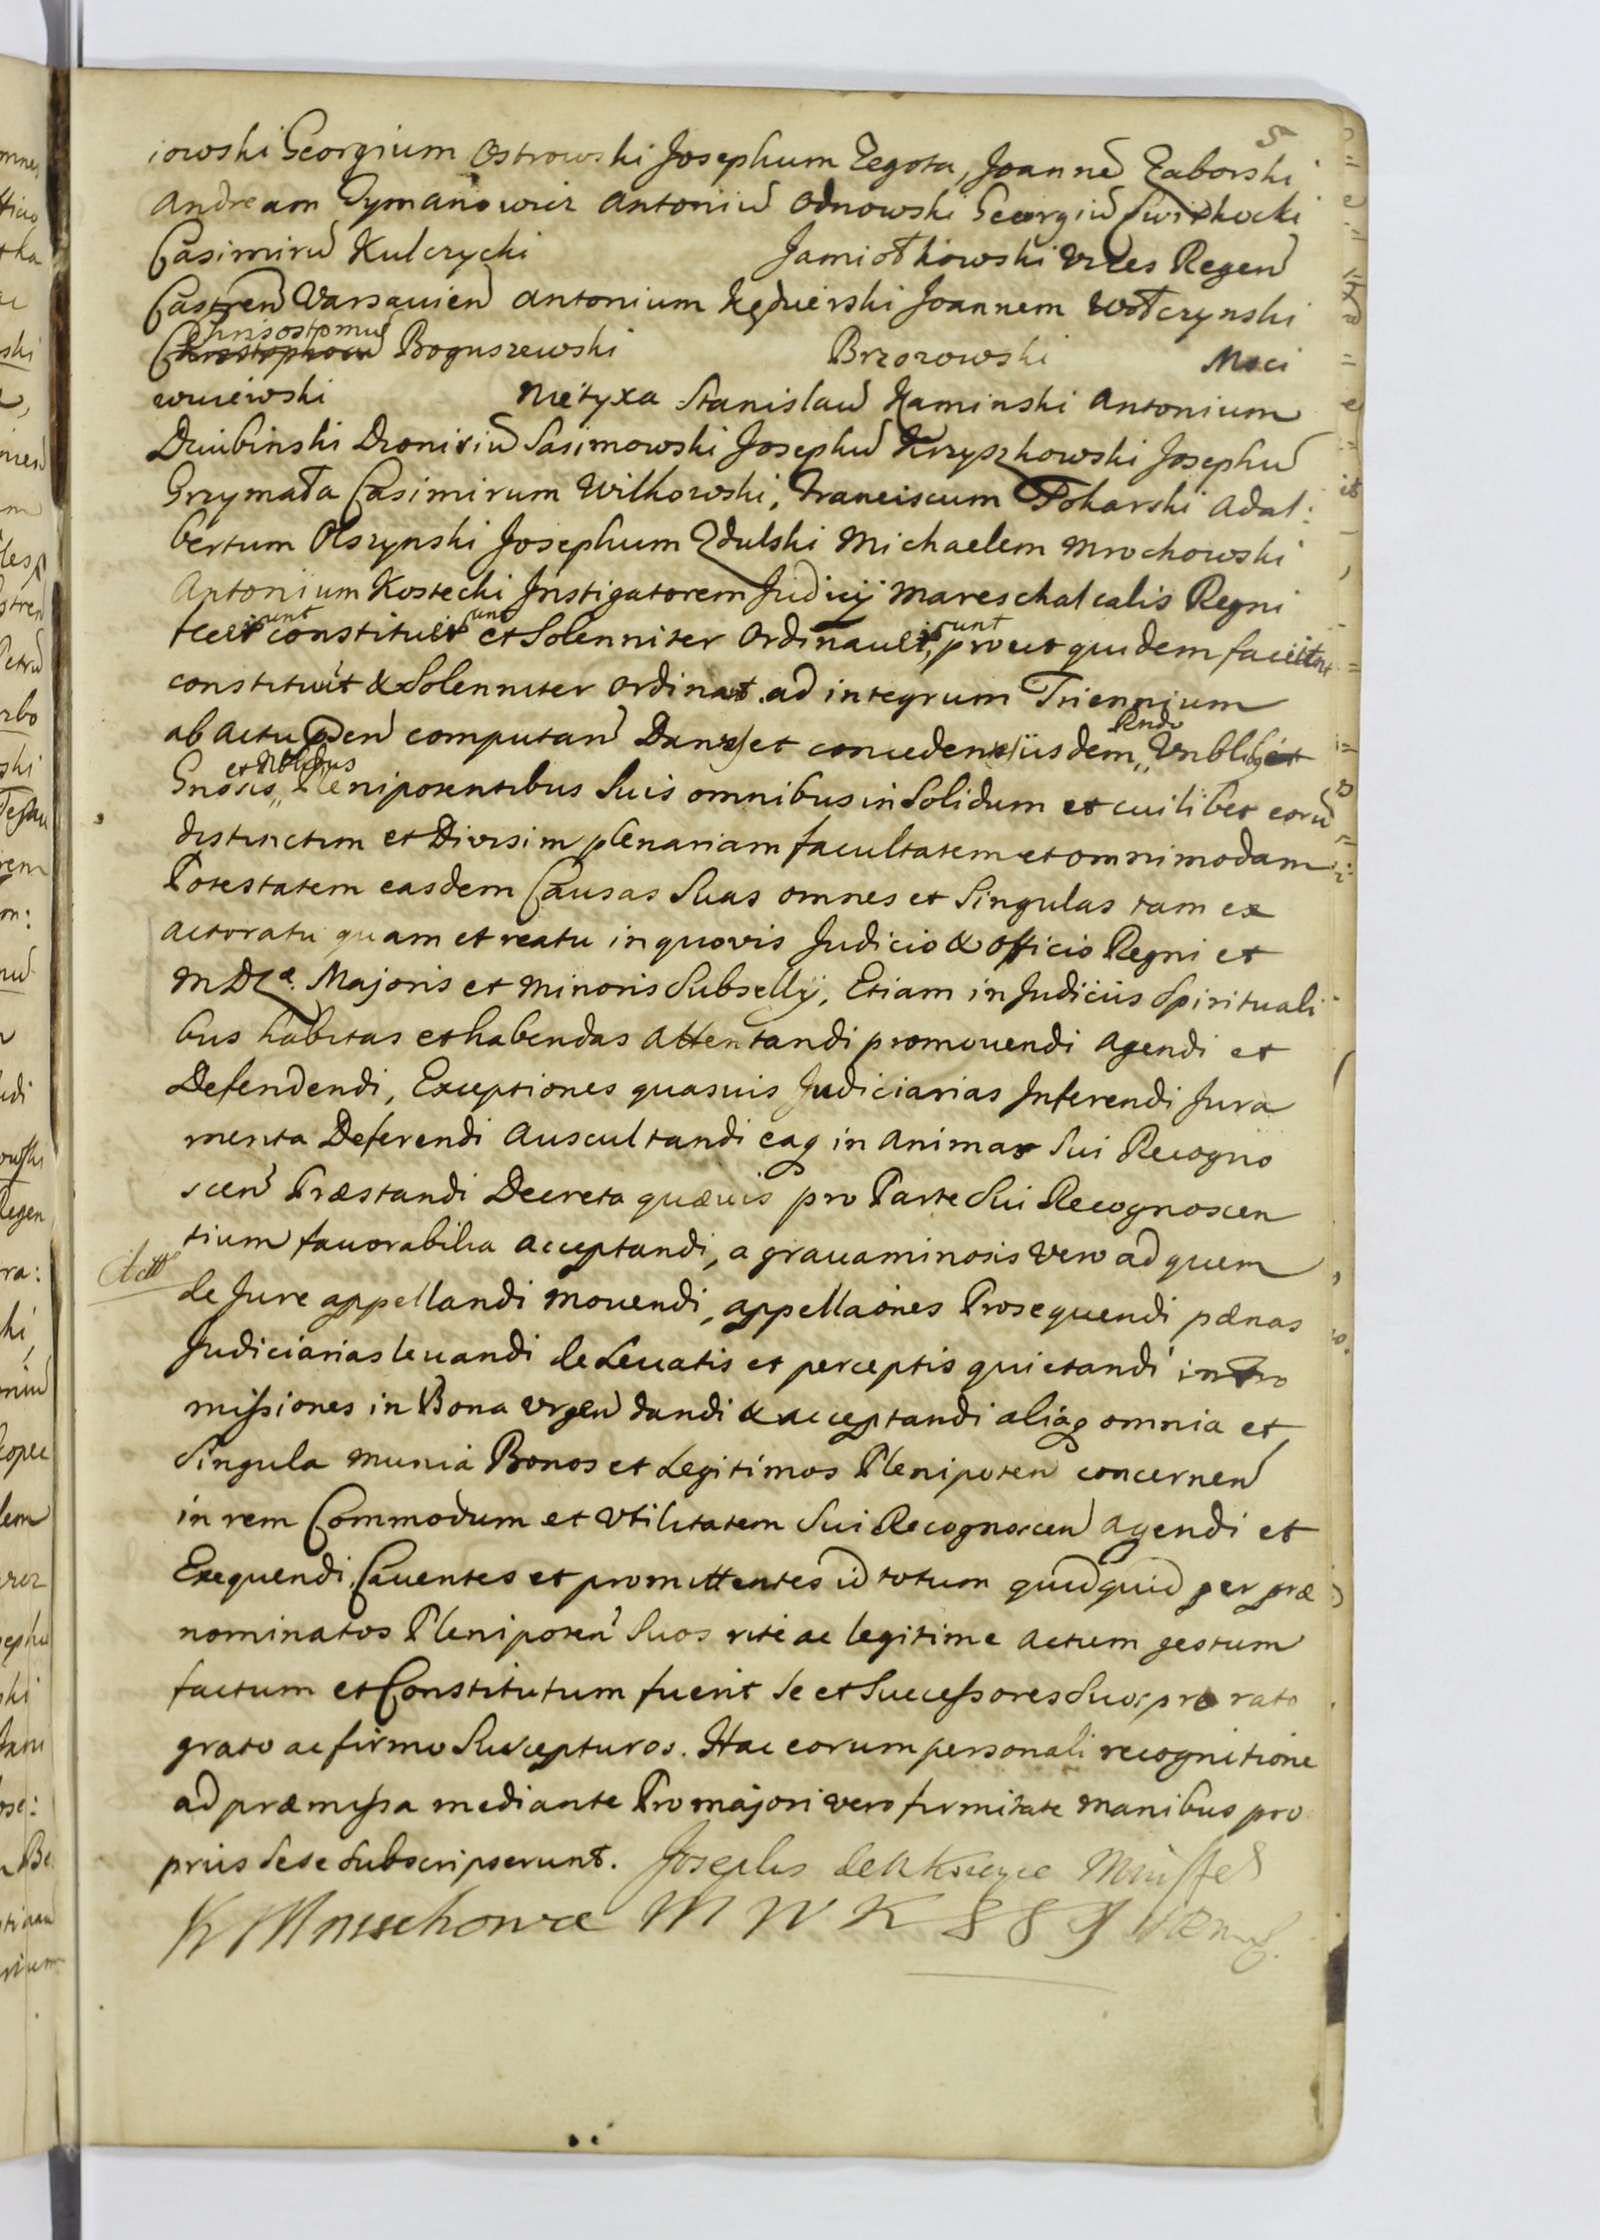 5
iowski Georgium Ostrowski Josephum Zegota, Joanne͂ Zaborski
Andream Szymanowicz Antoniu͂ Odnowski Georgiu͂ Swirkocki
Casimiru͂ Kulczycki Jamiołkowski Vices Regen͂
Castren͂ Varsavien͂ Antonium Kędzierski Joannem Wołczynski
Chrisostomu͂ Boguszewski Brzozowski Maci
wuiewski Nietyxa Stanislau͂ Kaminski Antonium
Dziubinski Dionisiu͂ Sasimowski Josephu͂ Krzyszkowski Josephu͂
Grzymała Casimirum Wilkowski, Franciscum Tokarski Adal:
bertum Olszynski Josephum Zdulski Michaelem Mrochowski
Antonium Kostecki Instigatorem Judicij Mareschalcalis Regni
fecerunt constituerunt et Solenniter Ordinaverunt, prout quidem faciunt
constituunt & Solenniter ordinant ad integrum Triennium
ab Actu pñen͂ computan͂ Dantes et concedentes iisdem Rndo Mblibg
Gnosis et Nblibus Plenipotentibus Suis omnibus in Solidum et cuilibet eoru͂
distinctim et Divisim plenariam facultatem et omnimodam
Potestatem easdem Causas Suas omnes et Singulas tam ex
actoratu quam et reatu in quovis Judicio & Officio Regni et
M D Læ. Majoris et minoris Subsellij, Etiam in Judiciis Spirituali
bus habitas et habendas Attentandi promovendi Agendi et
Defendendi, Exceptiones quasvis Judiciarias Inferendi Jura
menta Deferendi Auscultandi eaq in Animas Sui Recogno
scen͂ Præstandi Decreta quævis pro Parte Sui Recognoscen
tium favorabilia acceptandi, a gravaminosis vero ad quem
de Jure appellandi movendi, appellaones Prosequendi pænas
Judiciarias levandi de Levatis et perceptis quietandi intro
missiones in Bona vrgen͂ dandi & acceptandi aliaq omnia et
Singula munia Bonos et Legitimos Plenipoten͂ concernen͂
in rem Commodum et Vtilitatem Sui Recognoscen͂ agendi et
Exequendi, Caventes et promittentes id totum quidquid per præ
nominatos Plenipoten͂ Suos rite ac legitime actum gestum
factum et Constitutum fuerit se et Successores Suos pro rato
grato ac firmo Suscepturos. Hac eorum personali recognitione
ad præmissa mediante Pro majori vero firmitate manibus pro
priis sese Subscripserunt. Josephus
K Mniszchowa M W K